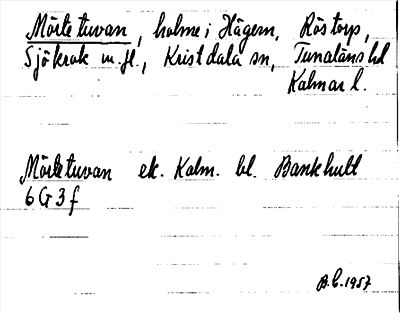 Mörletuvan, holme i Hägern, Röstorp,
Sjökrok m.fl., Kristdala sn, Tunaläns hd
Kalmar l.
Mörletuvan ek. Kalm. bl. Bankhult
6G3f
B.C. 1957